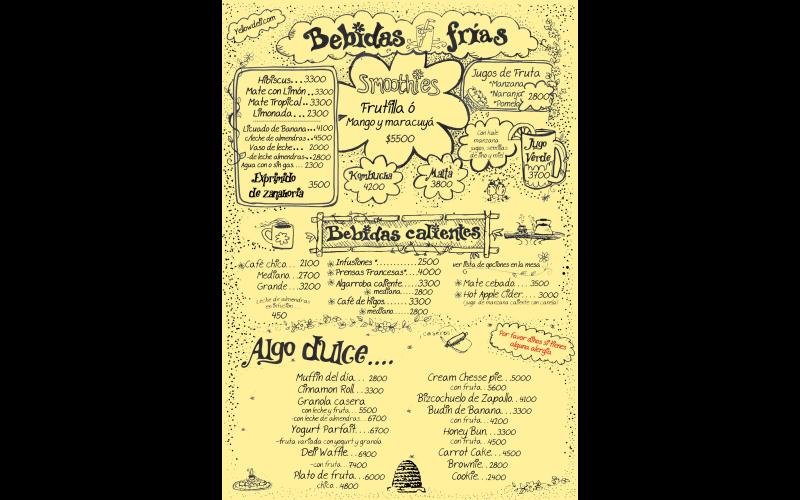 Yellowdeli.com
Bebidas frías
Hibiscus...3300
Mate con Limón..3300
Mate Tropical..3300
Limonada...2300
Licuado de Banana...4100
c/leche de almendras..4500
Vaso de leche... 2000
-de leche almendras..2800
Agua con o sin gas....2300
Exprimido
de zanahoria
3500
Smoothies
Frutilla ó
Mango y maracuyá
$5500
Kombucha
4200
Malta
3800
Jugos de Fruta
*Manzana
*Naranja
*Pomelo
2800
Con kale
manzana
jugos, semillas
de lino y miel
Jugo
Verde
3700
Bebidas calientes
Café chico... 2100
Mediano...2700
Grande....3200
Leche de almendras
en infusión
450
Infusiones *...........2500
Prensas Francesas*....4000
Algarroba caliente......3300
mediana......2800
Café de higos........3300
mediano......2800
ver lista de opciones en la mesa
Mate cebado.... 3500
Hot Apple Cider.... 3000
(jugo de manzana caliente con canela)
Algo dulce....
caseros
Por favor dinos si tienes
alguna alergia
Muffin del dia... 2800
Cinnamon Roll...3300
Granola casera
con leche y fruta...5500
-con leche de almendras...6700
Yogurt Parfait.....6700
-fruta variada con yogurt y granola
Deli Waffle...6900
-con fruta...7400
Plato de fruta...6000
chico...4800
Cream Chesse pie...5000
con fruta...5600
Bizcochuelo de Zapallo..4100
Budin de Banana...3300
con fruta...4200
Honey Bun....3300
con fruta...4500
Carrot Cake...4500
Brownie..2800
Cookie..2400